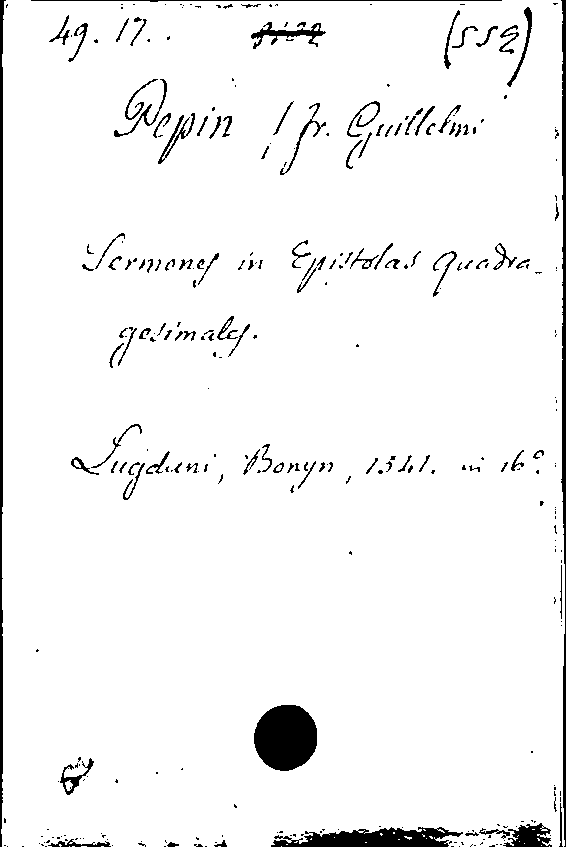 49. 17. . (SS2)
Pepin / fr. Guillelmi
Sermones in Epistolas quadra-
gesimales.
Lugduni, Bonyn, 1541. in 16°.